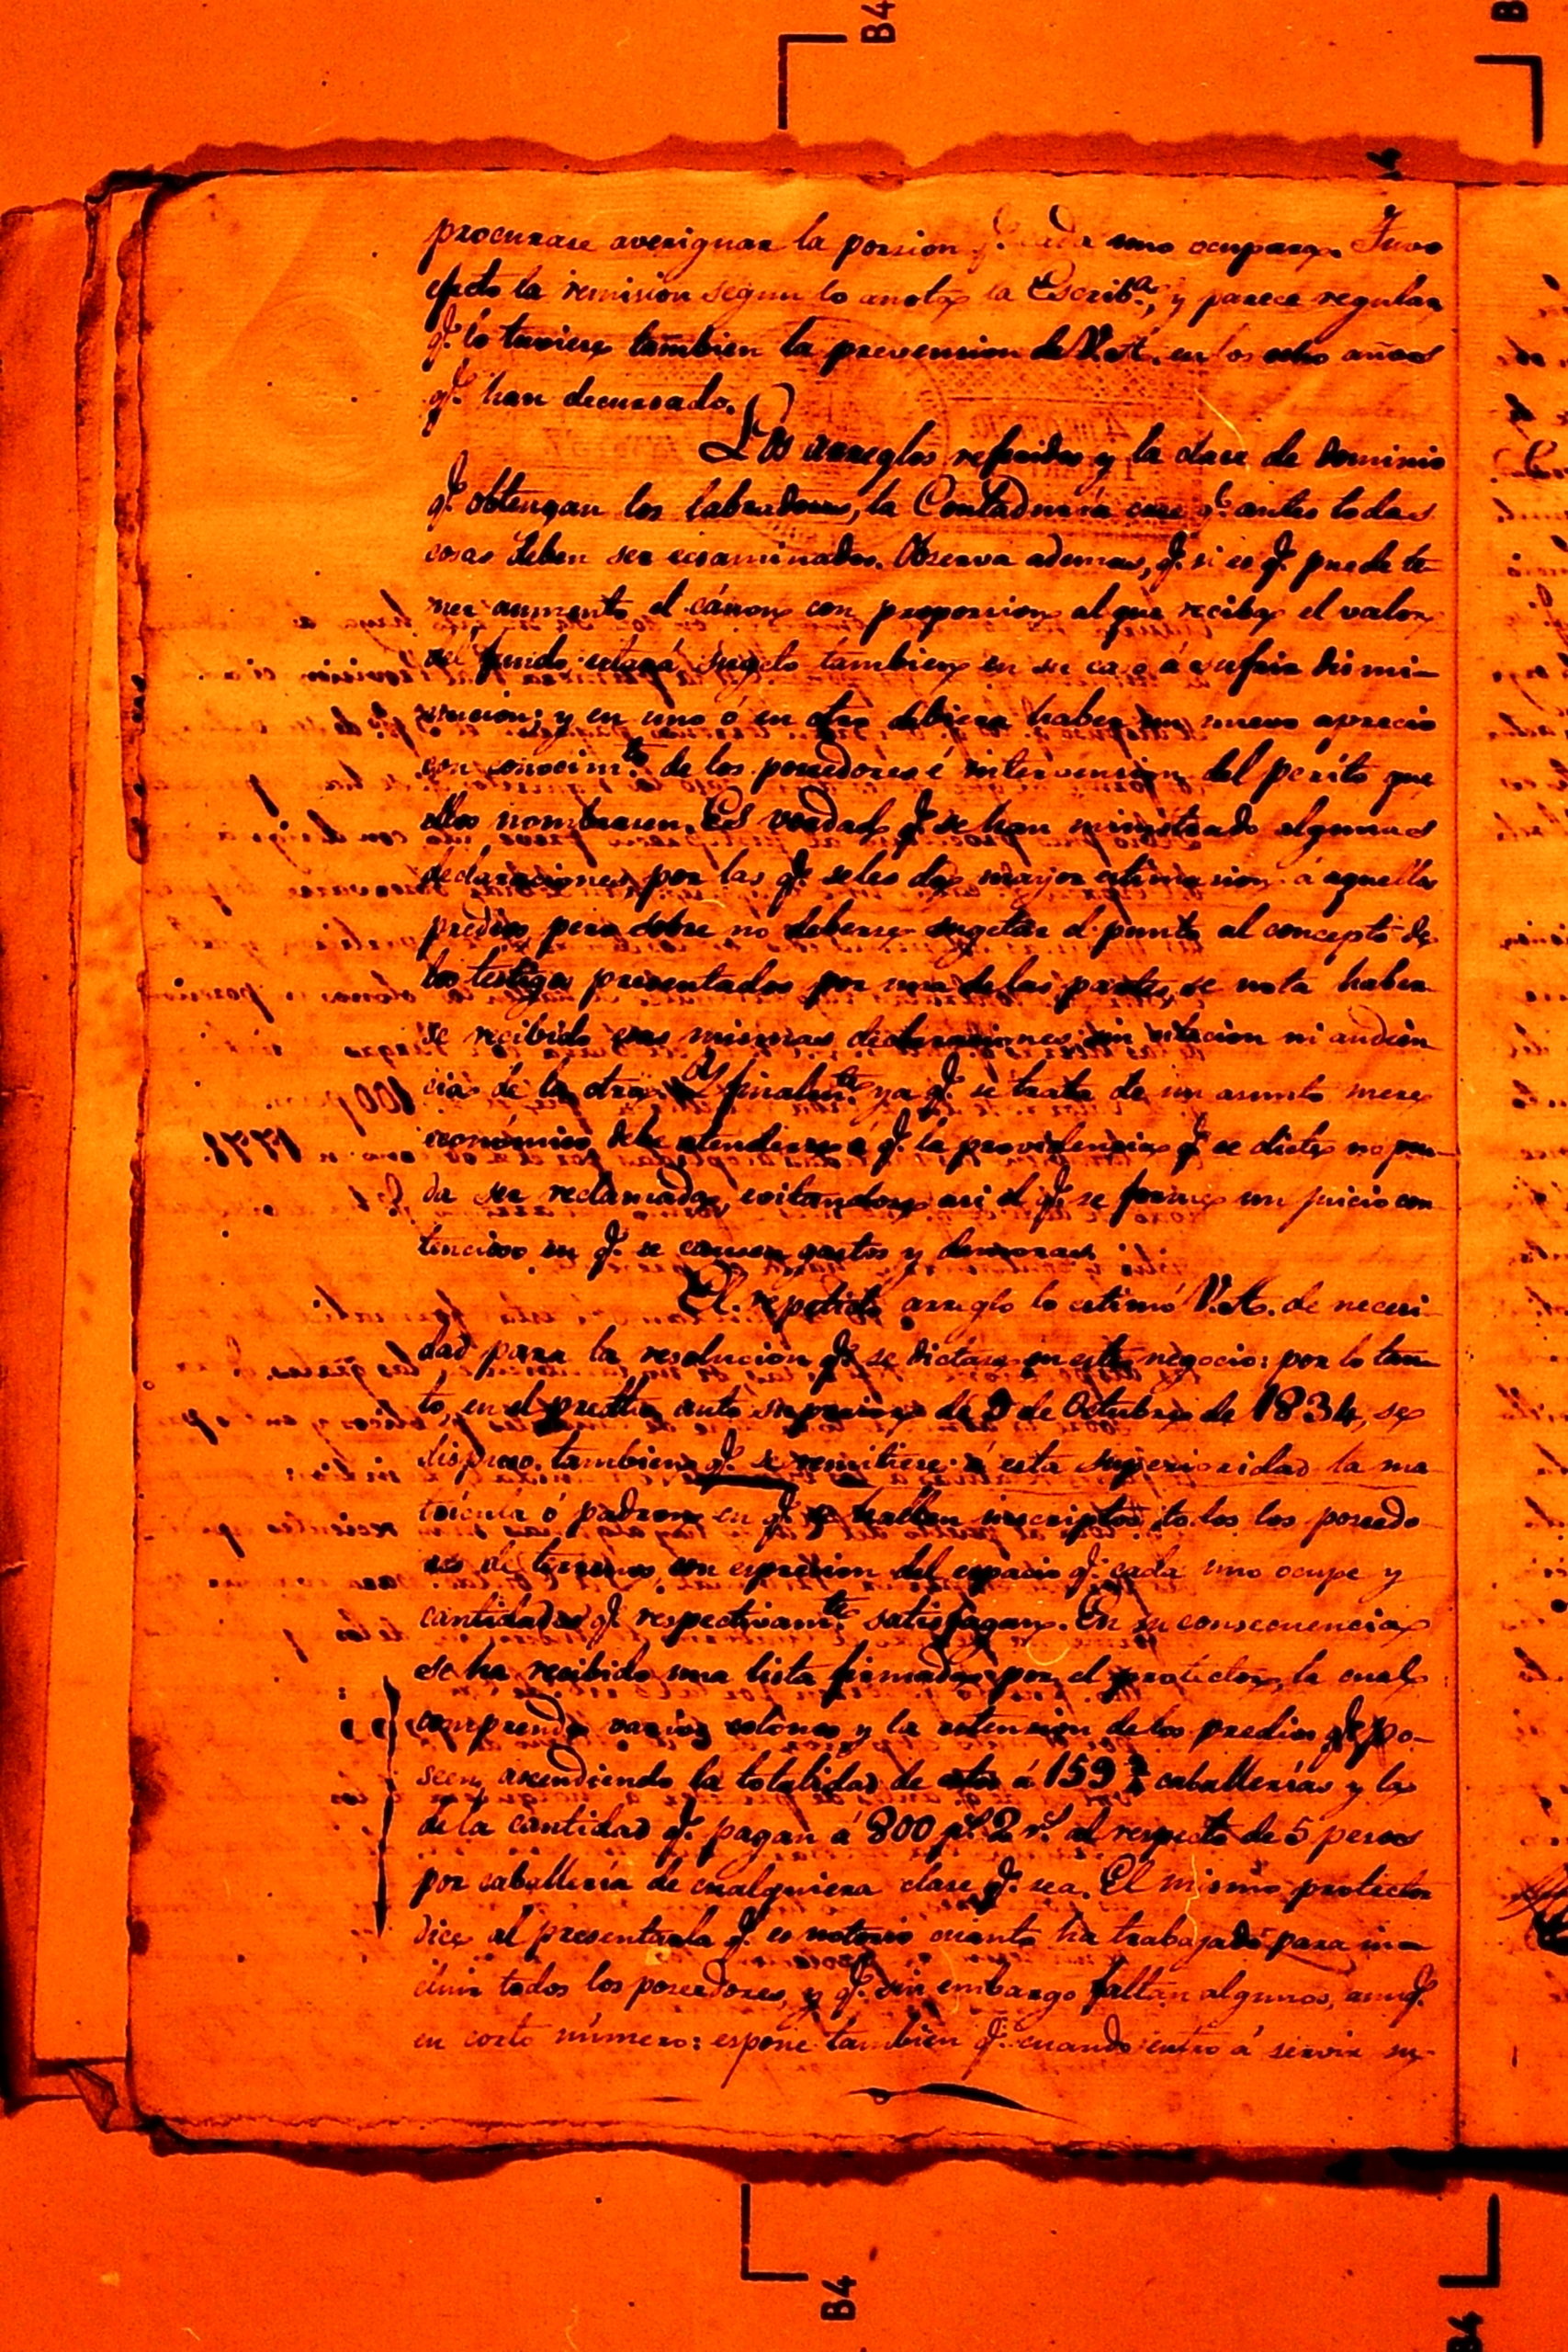 procurase averiguar la porsion q.e cada uno ocupara. Tuvo
efecto la remision segun lo anota la Escrib.a, y parece regular
q.e lo tuviera tambien la prevension de V.A. en los ocho años
q.e han decursado.
Los arreglos referidos y la clase de dominio
q.e obtengan los labradores, la Contaduria cree q.e antes todas
cosas deben ser ecsaminados. Observa ademas, q.e si es q.e puede te-
ner aumento el cánon con proporsion al que reciba el valor
del fundo estará sugeto tambien en su caso á sufrir dismi-
nucion; y en uno ó en otro debiera haber un nuevo aprecio
con conocim.to de los poseedores é intervension del périto que
ellos nombrasen. Es verdad q.e se han ministrado algunas
declaraciones por las q.e seles da mayor estimasion á aquellos
predios pero sobre no deberse sugetar el punto al concepto de
los testigos presentados por una delas partes, se nota haber-
se recibido esas mismas declarasiones sin citacion ni audien
cia de la otra. Y finalm.te ya q.e se trata de un asunto mere
económico debe atenderse á q.e la providencia q.e se dicte no pue-
da ser reclamada, evitandose asi el q.e se forme un juicio con
tencioso en q.e se causen gastos y demoras.
El repetido arreglo lo estimó V.A. de necesi-
dad para la resolucion q.e se dictase en este negocio: por lo tan-
to, en el auto superior de 9 de Octubre de 1834, se
dispuso tambien q.e se remitiese á esta superioridad la ma
trícula ó padron en q.e se hallen inscriptos todos los poseedo
res de terrenos con expresion del espacio q.e cada uno ocupe y
cantidades q.e respectivam.te satisfagan. En su consecuencia
se ha recibido una lista firmada por el protector, la cual
comprende varios colonos y la estension delos predios q.e po-
seen, ascendiendo la totalidad de estos á 159 caballerías y la
de la cantidad q.e pagan á 800 p.s 2 r.s al respecto de 5 pesos
por caballería de cualquiera clase q.e sea. El mismo protector
dice al presentarla q.e es notorio cuanto ha trabajado para in-
cluir todos los poseedores, y q.e sin embargo faltan algunos, aunq.e
en corto número: espone tambien q.e cuando entró á servir su
B4
B4
B4